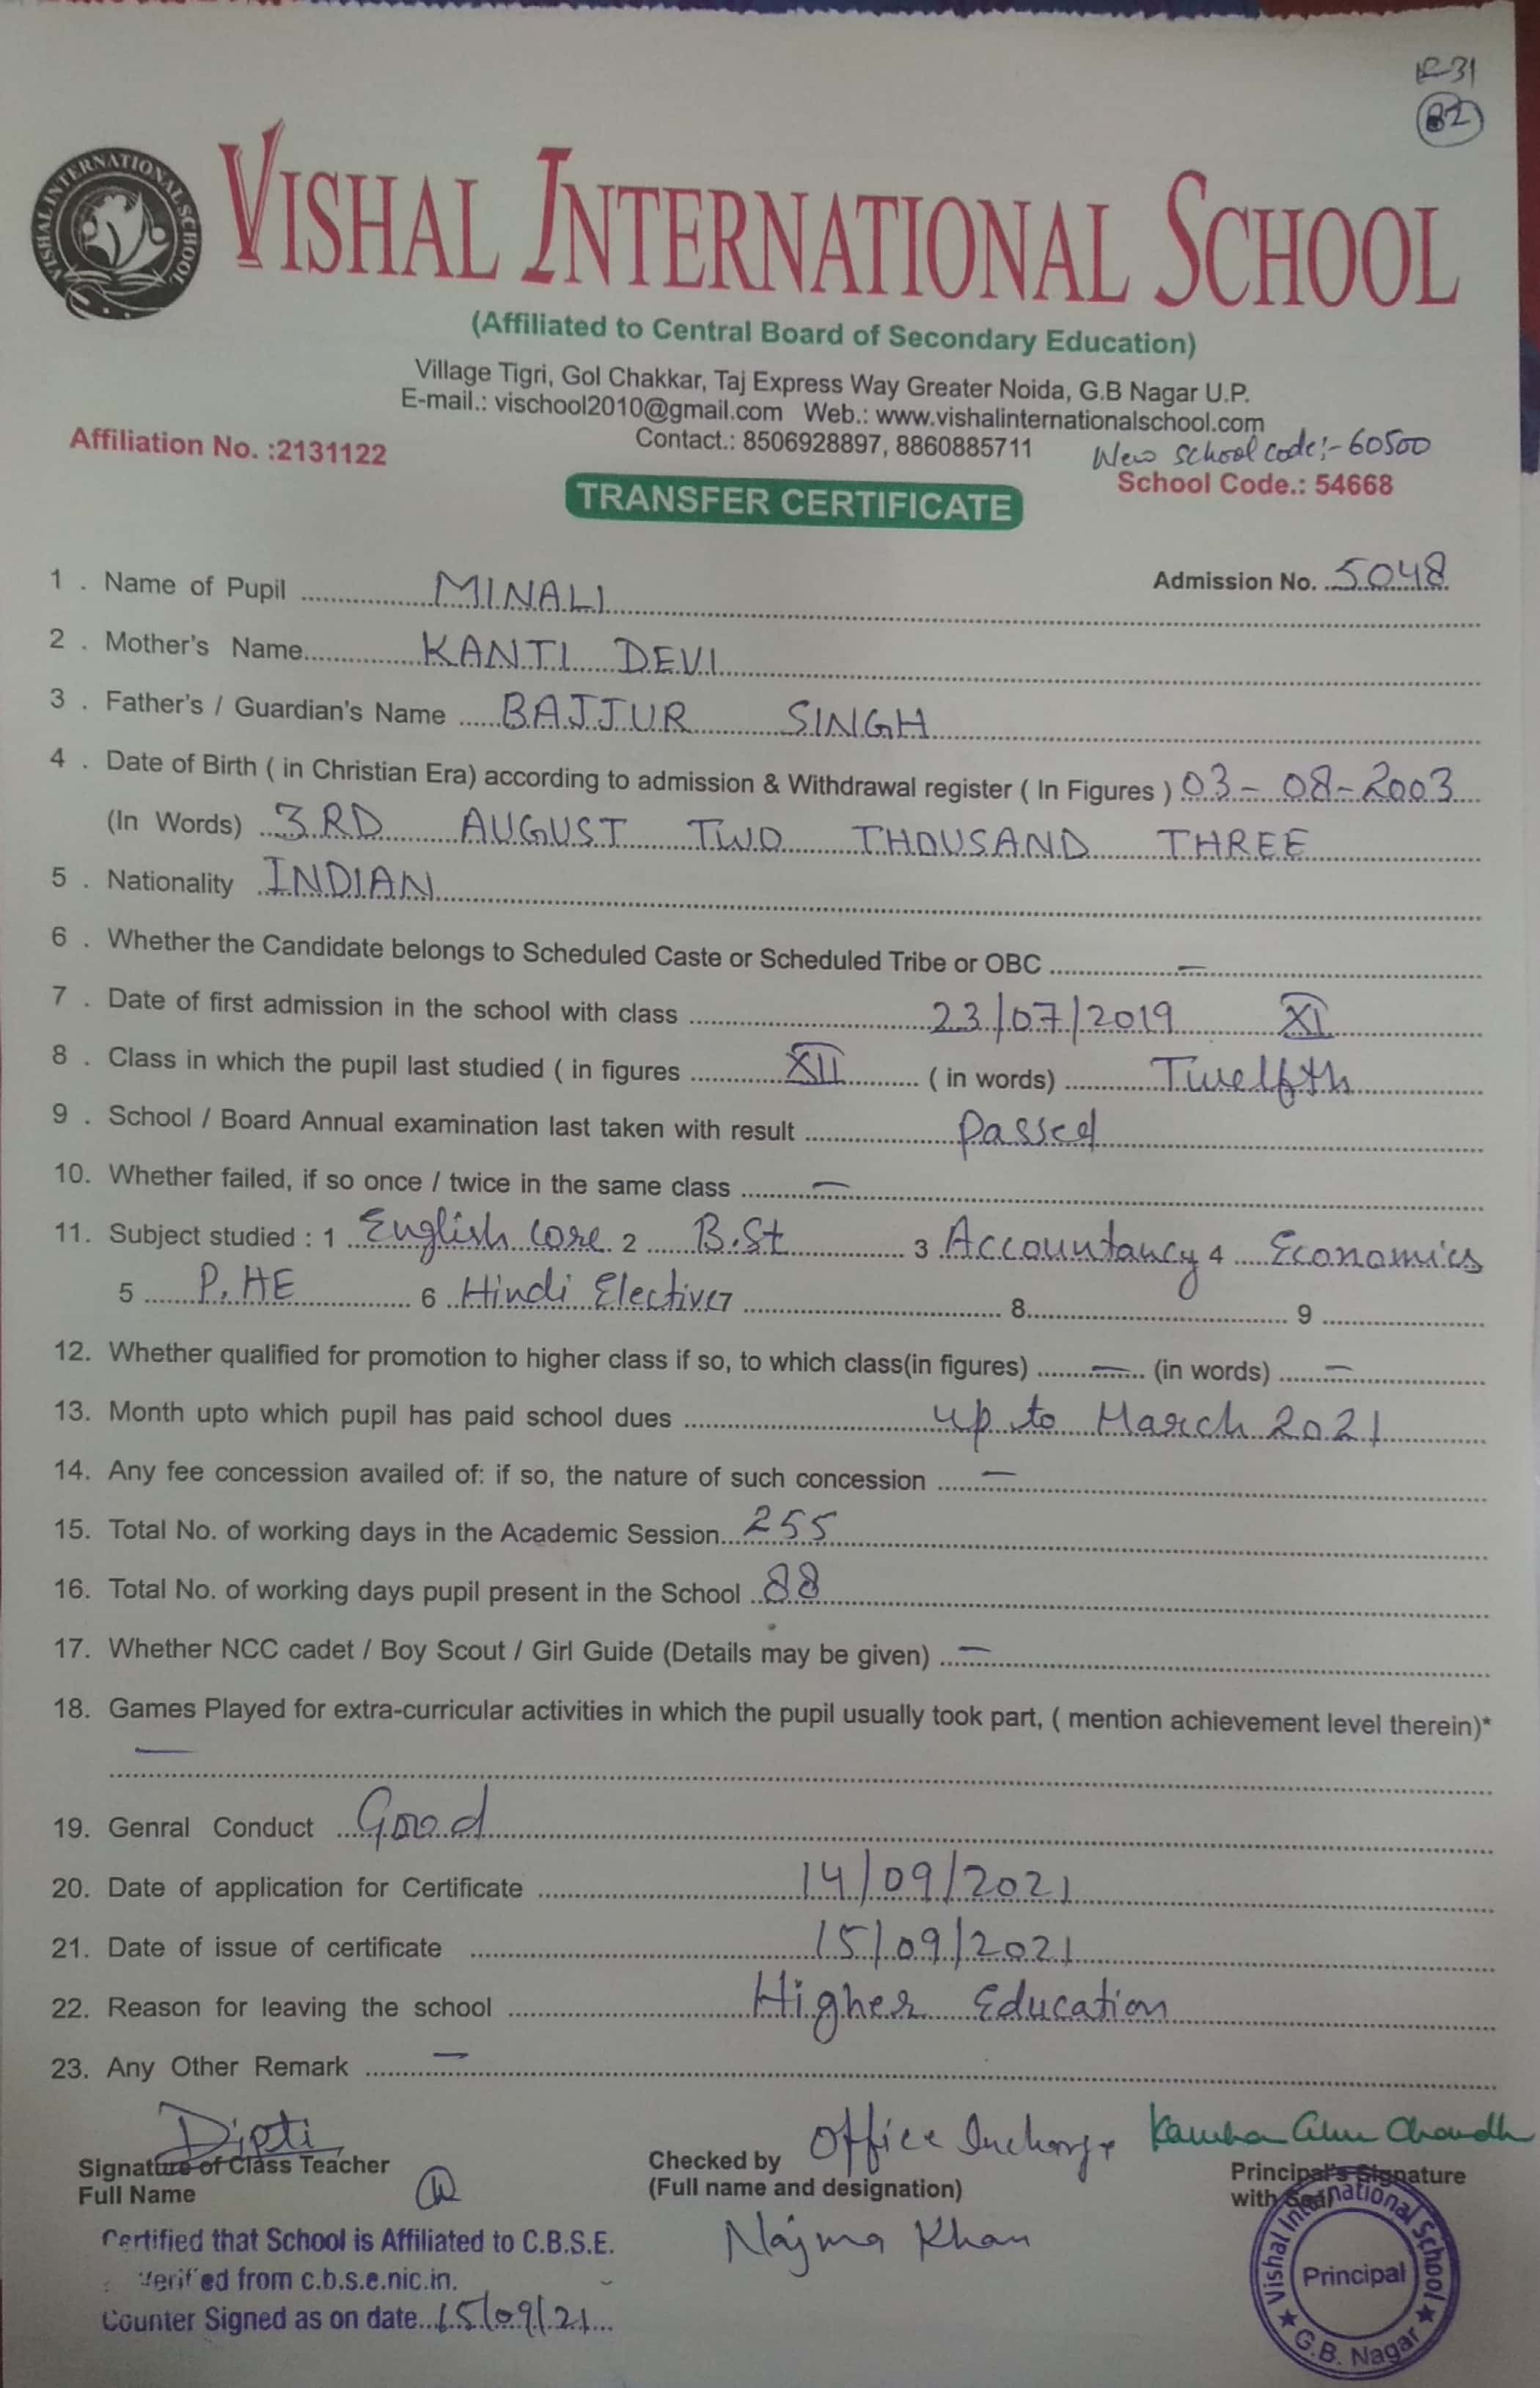 R-31
82
VISHAL INTERNATIONAL SCHOOL
VISHAL INTERNATIONAL SCHOOL
(Affiliated to Central Board of Secondary Education)
Village Tigri, Gol Chakkar, Taj Express Way Greater Noida, G.B Nagar U.P.
E-mail.: vischool2010@gmail.com Web.: www.vishalinternationalschool.com
Contact.: 8506928897, 8860885711
New school code:- 60500
Affiliation No. :2131122
School Code.: 54668
TRANSFER CERTIFICATE
Admission No. 5048
1 . Name of Pupil MINALI
2 . Mother's Name KANTI DEVI
3 . Father's / Guardian's Name BAJJUR SINGH
4 . Date of Birth ( in Christian Era) according to admission & Withdrawal register ( In Figures ) 03-08-2003
(In Words) 3RD AUGUST TWO THOUSAND THREE
5 . Nationality INDIAN
6 . Whether the Candidate belongs to Scheduled Caste or Scheduled Tribe or OBC —
7 . Date of first admission in the school with class 23/07/2019 XI
8 . Class in which the pupil last studied ( in figures XII ( in words) Twelfth
9 . School / Board Annual examination last taken with result Passed
10. Whether failed, if so once / twice in the same class —
11. Subject studied : 1 English core 2 B.St 3 Accountancy 4 Economics
5 P.HE 6 Hindi Elective 7 8 9
12. Whether qualified for promotion to higher class if so, to which class(in figures) — (in words) —
13. Month upto which pupil has paid school dues up to March 2021
14. Any fee concession availed of: if so, the nature of such concession —
15. Total No. of working days in the Academic Session 255
16. Total No. of working days pupil present in the School 88
17. Whether NCC cadet / Boy Scout / Girl Guide (Details may be given) —
18. Games Played for extra-curricular activities in which the pupil usually took part, ( mention achievement level therein)*
—
19. Genral Conduct Good
20. Date of application for Certificate 14/09/2021
21. Date of issue of certificate 15/09/2021
22. Reason for leaving the school Higher Education
23. Any Other Remark —
Dipti
Signature of Class Teacher
Full Name
Checked by Office Incharge
(Full name and designation)
Najma Khan
Principal's Signature
with Seal
Vishal International School
Principal
G.B. Nagar
Certified that School is Affiliated to C.B.S.E.
Verified from c.b.s.e.nic.in.
Counter Signed as on date 15/09/21